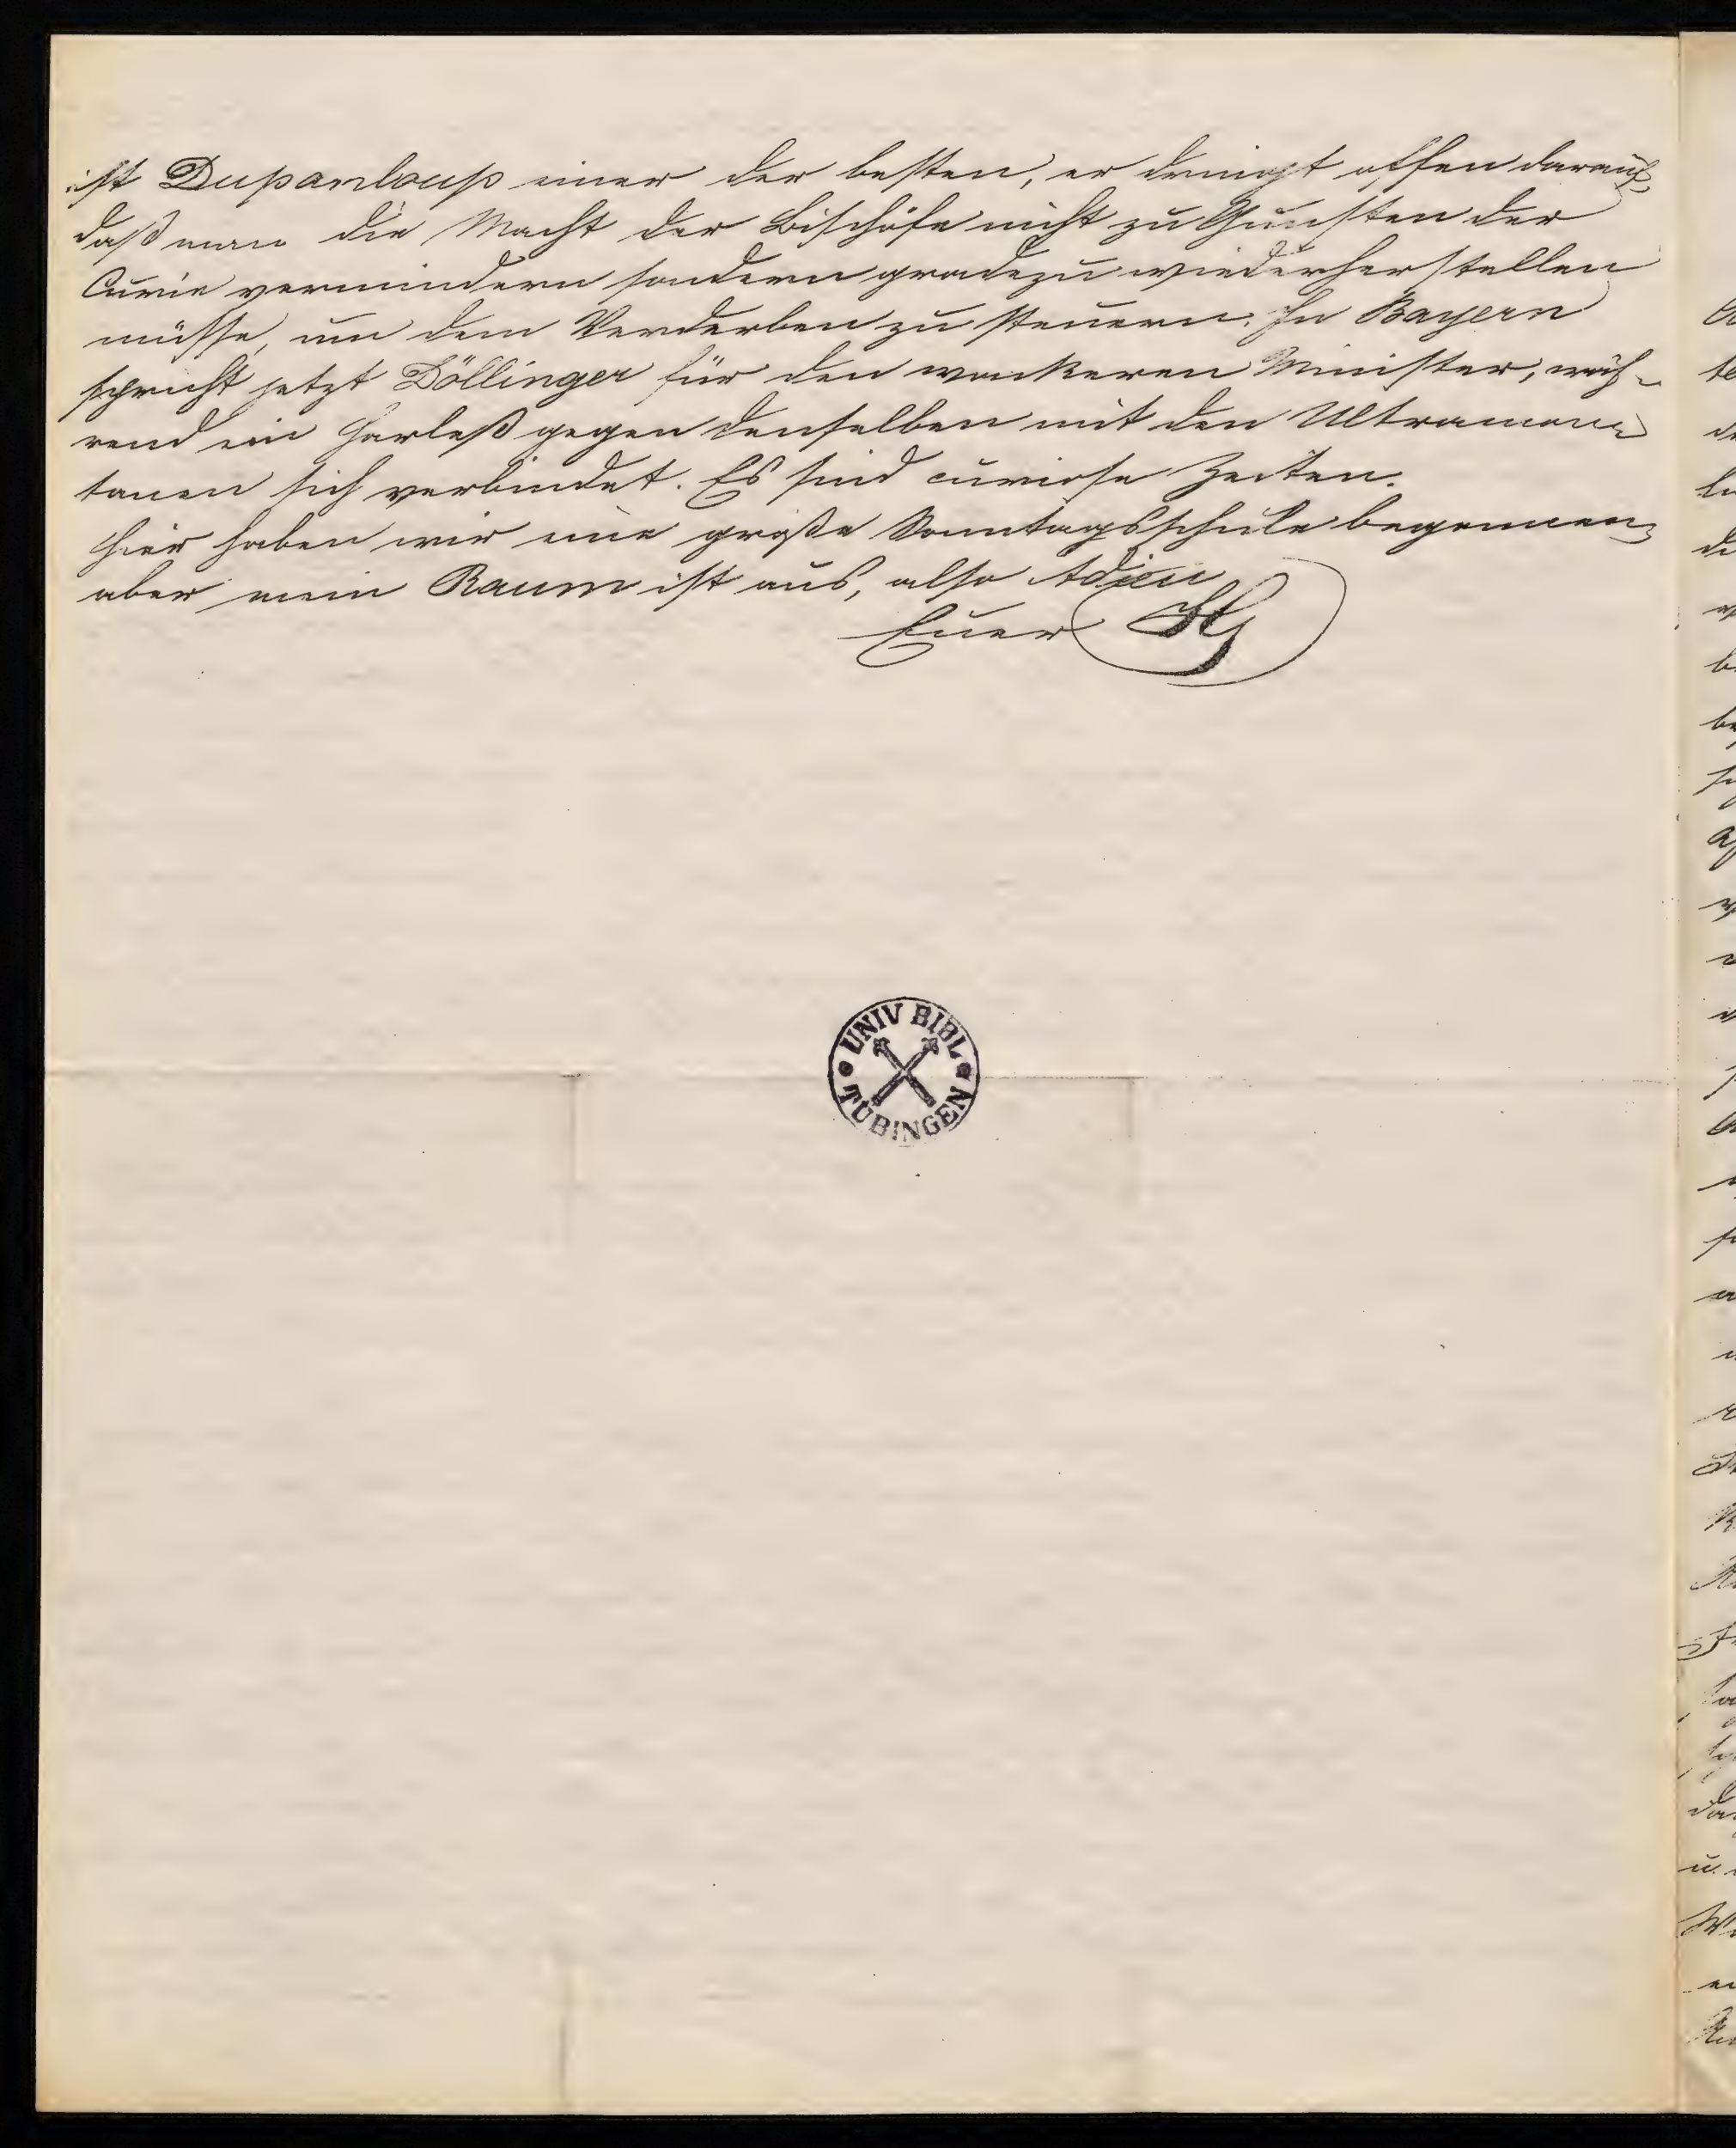 ist Dupanloup einer der besten, er dringt offen darauf,
daß man die Macht der Bischöfe nicht zu Gunsten der
Curie vermindern sondern gradezu wiederherstellen
müsse, um dem Verderben zu steuern. In Bayern
spricht jetzt Döllinger für den wankeren Minister, wäh-
rend ein Harleß gegen denselben mit den Ultramon-
tanen sich verbindet. Es sind curiose Zeiten.
Hier haben wir eine große Sonntagsschule begonnen,
aber mein Raum ist aus, also Adieu
Euer HG
UNIV BIBL
TÜBINGEN